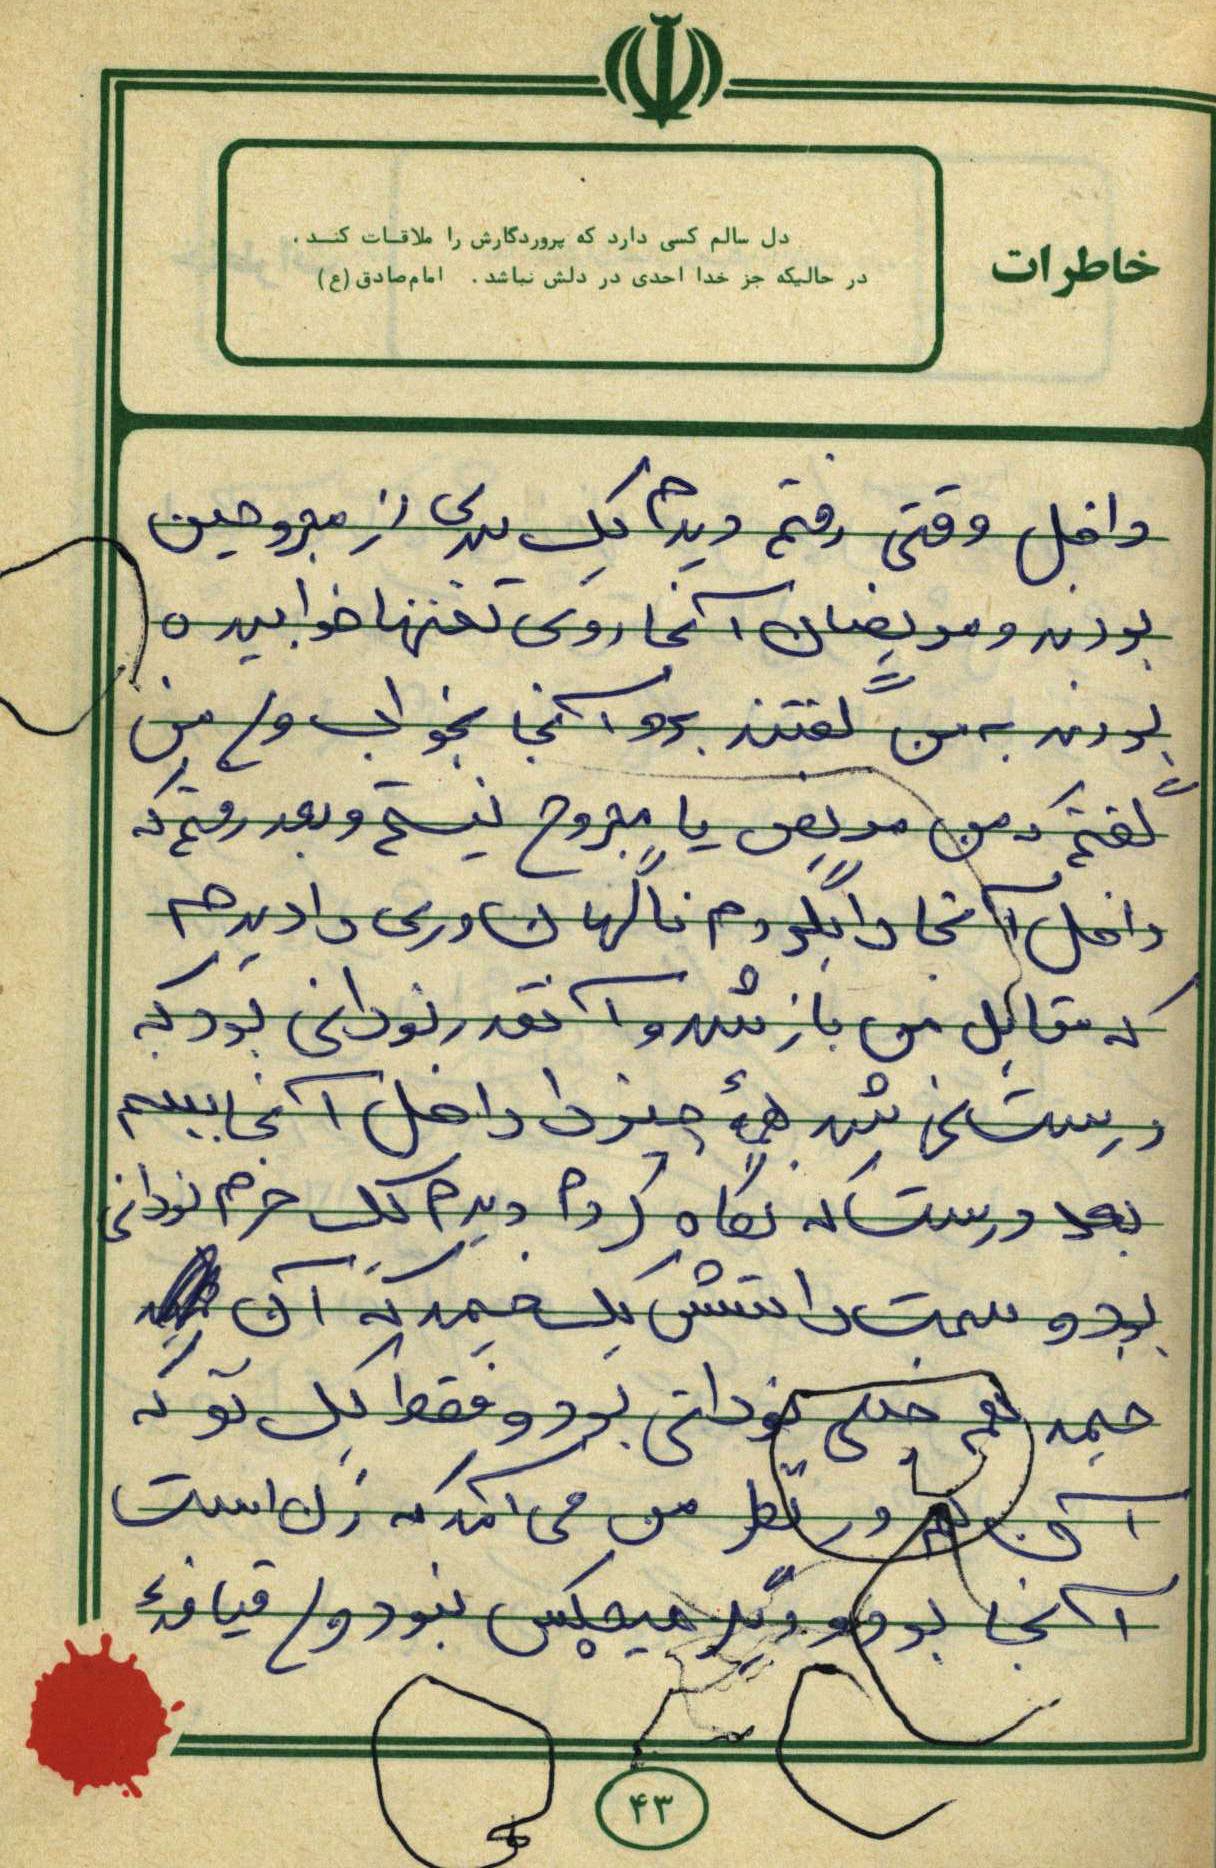 خاطرات
دل سالم کسی دارد که پروردگارش را ملاقات کند .
در حالیکه جز خدا احدی در دلش نباشد . امام صادق (ع)
داخل وقتی رفتم دیدم یک سری از مجروحین
بودند و مریضان آنجا روی تختها خوابیده
بودند به من گفتند برو آنجا بخواب ولی من
گفتم که من مریض یا مجروح نیستم و بعد رفتم که
داخل آنجا را بگردم ناگهان دری را دیدم
که مقابل من باز شد و آنقدر نورانی بود که
درست نمی شد همهٔ چیز را داخل آنجا ببینم
بعد درست که نگاه کردم دیدم یک حرم نورانی
بود و سمت راستش یک خیمه که آن
خیمه هم خیلی نورانی بود و فقط یک نور که
آن هم در نظر من می آمد که زن است
آنجا بود و دیگر هیچکس نبود ولی قیافهٔ
۴۳